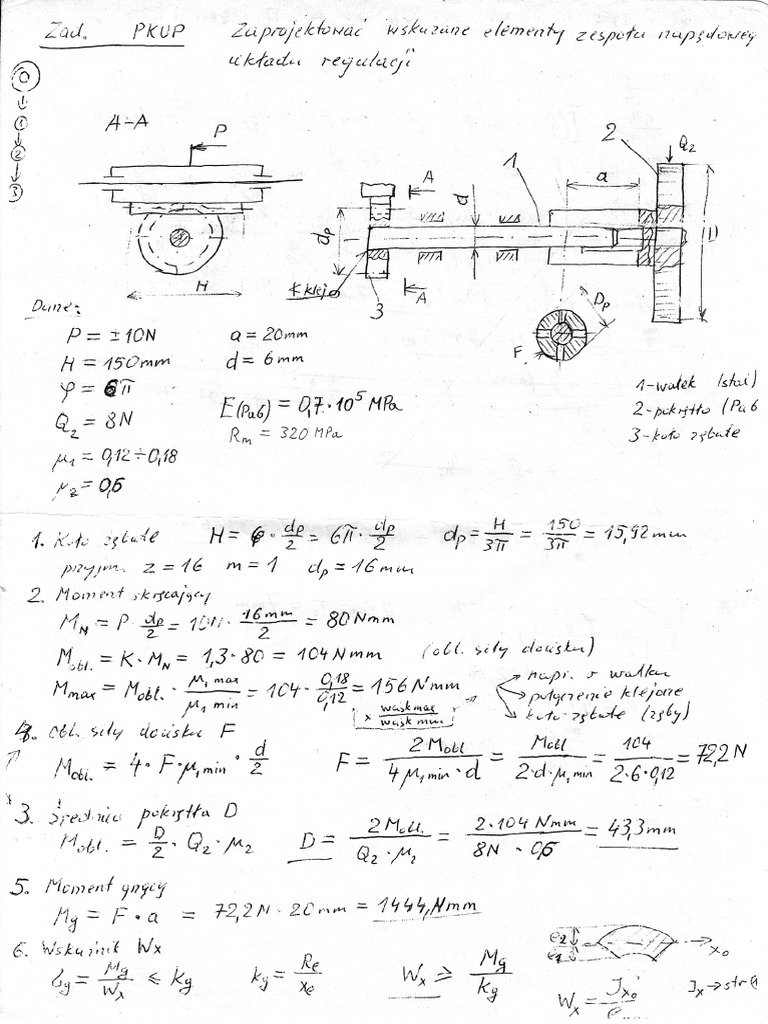 Zad. PKUP Zaprojektować wskazane elementy zespołu napędowego
układu regulacji
0
1
2
3
A-A
P
H
A
A
d
dp
1
2
3
a
Q2
D
Dp
F
klej
Dane:
P = ±10N a = 20mm
H = 150mm d = 6mm
φ = 6π
Q2 = 8N
μ1 = 0,12÷0,18
μ2 = 0,6
E(Pa6) = 0,7·10^5 MPa
Rm = 320 MPa
1-wałek (stal)
2-pokrętło (Pa6
3-koło zębate
1. Koło zębate H = φ·dp/2 = 6π·dp/2 dp = H/3π = 150/3π = 15,92 mm
przyjm. z = 16 m = 1 dp = 16 mm
2. Moment skręcający
MN = P·dp/2 = 10N·16mm/2 = 80 Nmm
Mobl. = K·MN = 1,3·80 = 104 Nmm (obl. siły docisku)
Mmax = Mobl.·μ1 max/μ1 min = 104·0,18/0,12 = 156 Nmm
x wciskmax/wciskmin
napr. s wałka
połączenie klejone
koło zębate (zęby)
4. Obl. siły docisku F
Mobl. = 4·F·μ1min·d/2 F = 2Mobl/4μ1min·d = Mobl/2·d·μ1min = 104/2·6·0,12 = 72,2 N
3. Średnica pokrętła D
Mobl. = D/2·Q2·μ2 D = 2Mobl./Q2·μ2 = 2·104Nmm/8N·0,6 = 43,3mm
5. Moment gnący
Mg = F·a = 72,2N·20mm = 1444,Nmm
6. Wskaźnik Wx
σg = Mg/Wx ≤ kg kg = Re/xe Wx ≥ Mg/kg
e2
e1
x0
Wx = Jx0/e
Jx → str